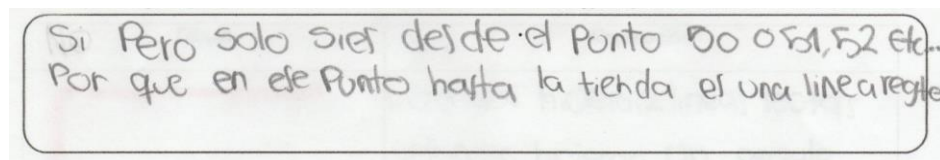 Si Pero solo si es desde el Punto 50 o 51, 52 etc..
Por que en ese Punto hasta la tienda es una linea regte